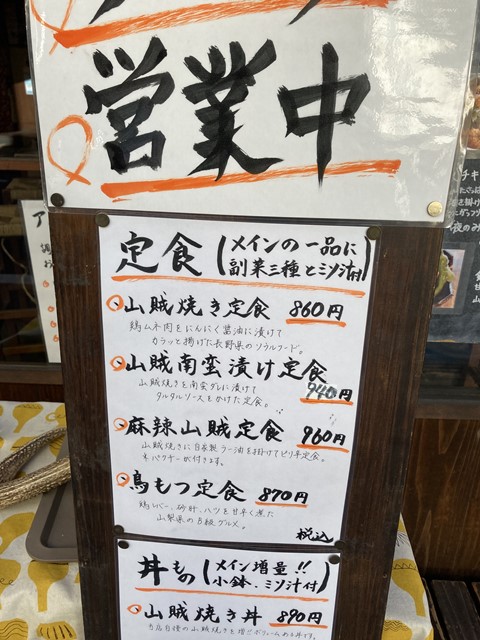 営業中
定食(メインの一品に
副菜三種とミソ汁付)
山賊焼き定食 860円
鶏ムネ肉をにんにく醤油に漬けて
カラッと揚げた長野県のソウルフード。
山賊南蛮漬け定食
940円
山賊焼きを南蛮ダレに漬けて
タルタルソースをかけた定食。
麻辣山賊定食 960円
山賊焼きに自家製ラー油を掛けてピリ辛定食。
パクチーが付きます。
鳥もつ定食 870円
鶏レバー、砂肝、ハツを甘辛く煮た
山梨県のB級グルメ。
税込
丼もの(メイン増量!!
小鉢、ミソ汁付)
山賊焼き丼 890円